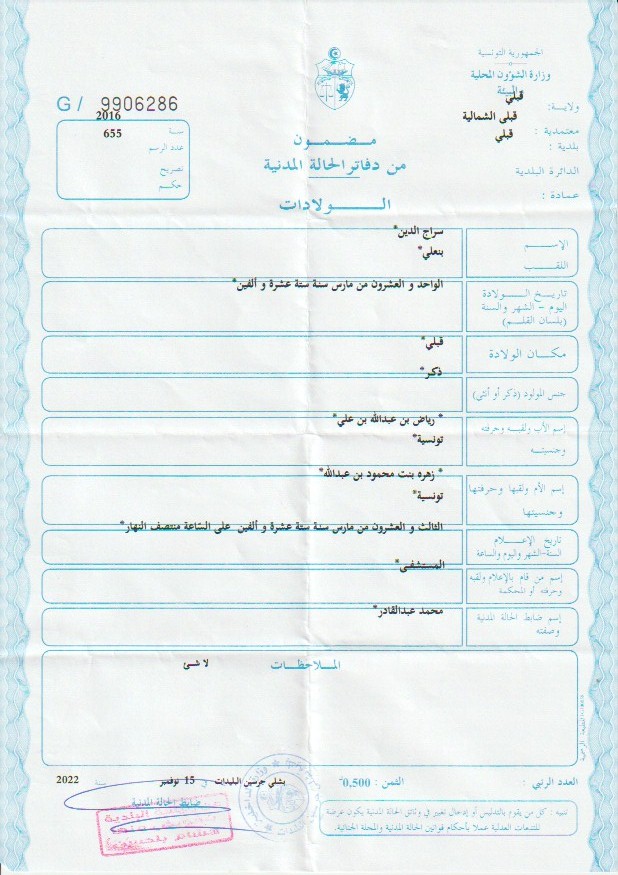 الجمهورية التونسية
وزارة الشؤون المحلية
و البيئة
ولاية: قبلي
معتمدية : قبلي الشمالية
بلدية : قبلي
الدائرة البلدية
عمادة :
G / 9906286
سنة 2016
عدد الرسم 655
تصريح
حكم
مضمون
من دفاتر الحالة المدنية
الولادات
الإسم
سراج الدين*
اللقب
بنعلي*
تاريخ الولادة
اليوم - الشهر والسنة
(بلسان القلم)
الواحد و العشرون من مارس سنة ستة عشرة و ألفين*
مكان الولادة
قبلي*
جنس المولود (ذكر أو أنثى)
ذكر*
إسم الأب ولقبه وحرفته
وجنسيته
* رياض بن عبدالله بن علي*
تونسية*
إسم الأم ولقبها وحرفتها
وجنسيتها
* زهره بنت محمود بن عبدالله*
تونسية*
تاريخ الإعلام
السنة-الشهر واليوم والساعة
الثالث و العشرون من مارس سنة ستة عشرة و ألفين على الساعة منتصف النهار*
إسم من قام بالإعلام ولقبه
وحرفته أو المحكمة
المستشفى*
إسم ضابط الحالة المدنية
وصفته
محمد عبدالقادر*
الملاحظات
لا شئ
العدد الرتبي :
الثمن : 0,500
بشلي جرسين البليدات في 15 نوفمبر 2022
ضابط الحالة المدنية
تنبيه : كل من يقوم بالتدليس أو إدخال تغيير في وثائق الحالة المدنية يكون عرضة
للتتبعات العدلية عملا بأحكام قوانين الحالة المدنية والمجلة الجنائية.